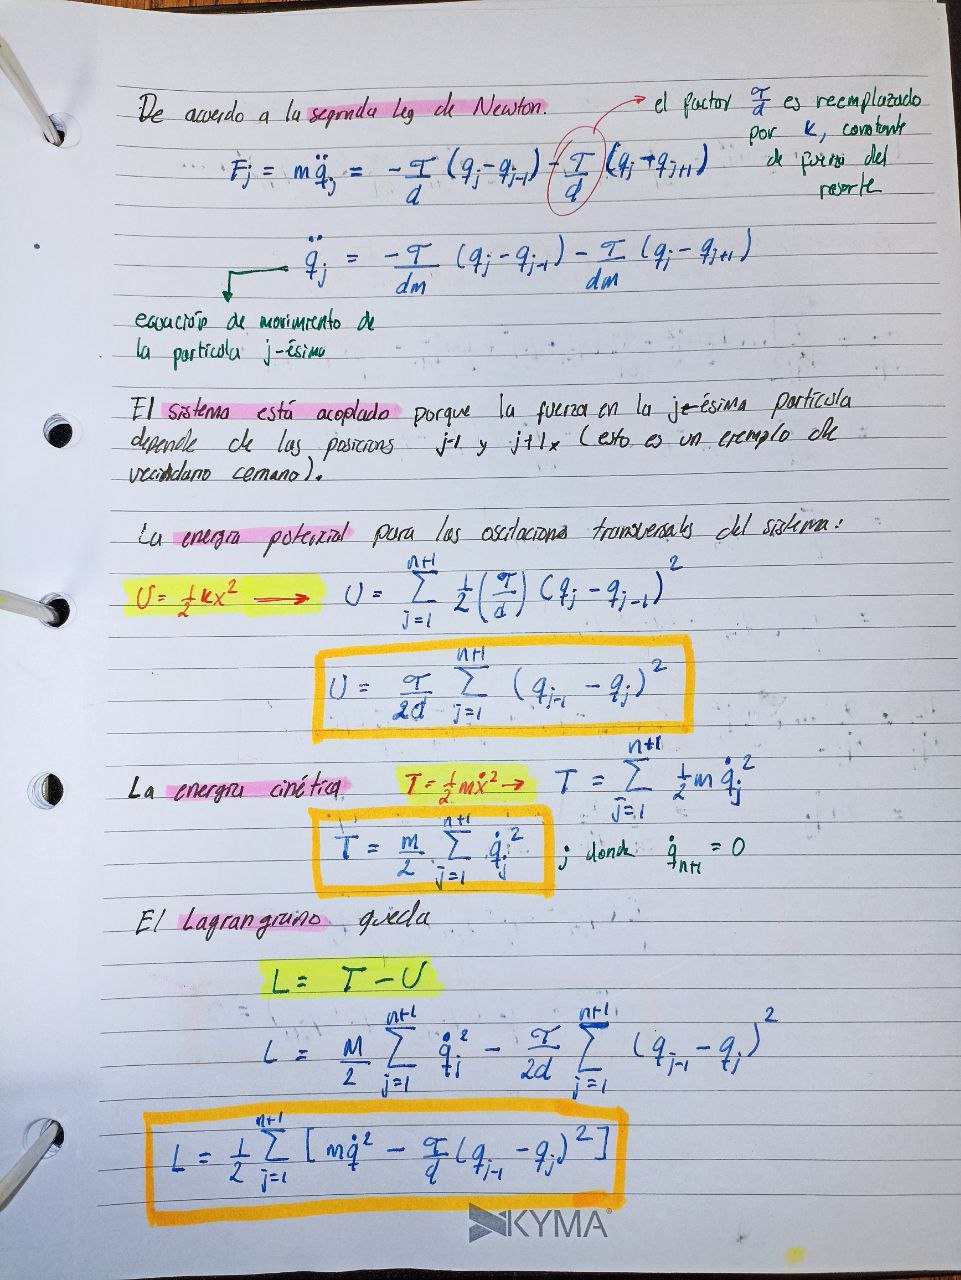 De acuerdo a la segunda ley de Newton.
el factor τ/d es reemplazado
por k, constante
de fuerza del
resorte
Fj = m q̈j = -τ/d (qj - qj-1) - τ/d (qj + qj+1)
q̈j = -τ/dm (qj - qj-1) - τ/dm (qj - qj+1)
ecuación de movimiento de
la partícula j-ésima
El sistema está acoplado porque la fuerza en la j-ésima partícula
depende de las posicions j-1 y j+1 (esto es un ejemplo de
cemano).
La energía potenzial para las oscilacions transversales del sistema:
U = 1/2 kx² → U = Σ_{j=1}^{n+1} 1/2 (τ/d) (qj - qj-1)²
U = τ/2d Σ_{j=1}^{n+1} (qj-1 - qj)²
La energía cinética T = 1/2 mẋ² → T = Σ_{j=1}^{n+1} 1/2 m q̇j²
T = m/2 Σ_{j=1}^{n+1} q̇j² ; donde q̇n+1 = 0
El Lagrangiano queda
L = T - U
L = m/2 Σ_{j=1}^{n+1} q̇j² - τ/2d Σ_{j=1}^{n+1} (qj-1 - qj)²
L = 1/2 Σ_{j=1}^{n+1} [mq̇² - τ/d (qj-1 - qj)²]
KYMA